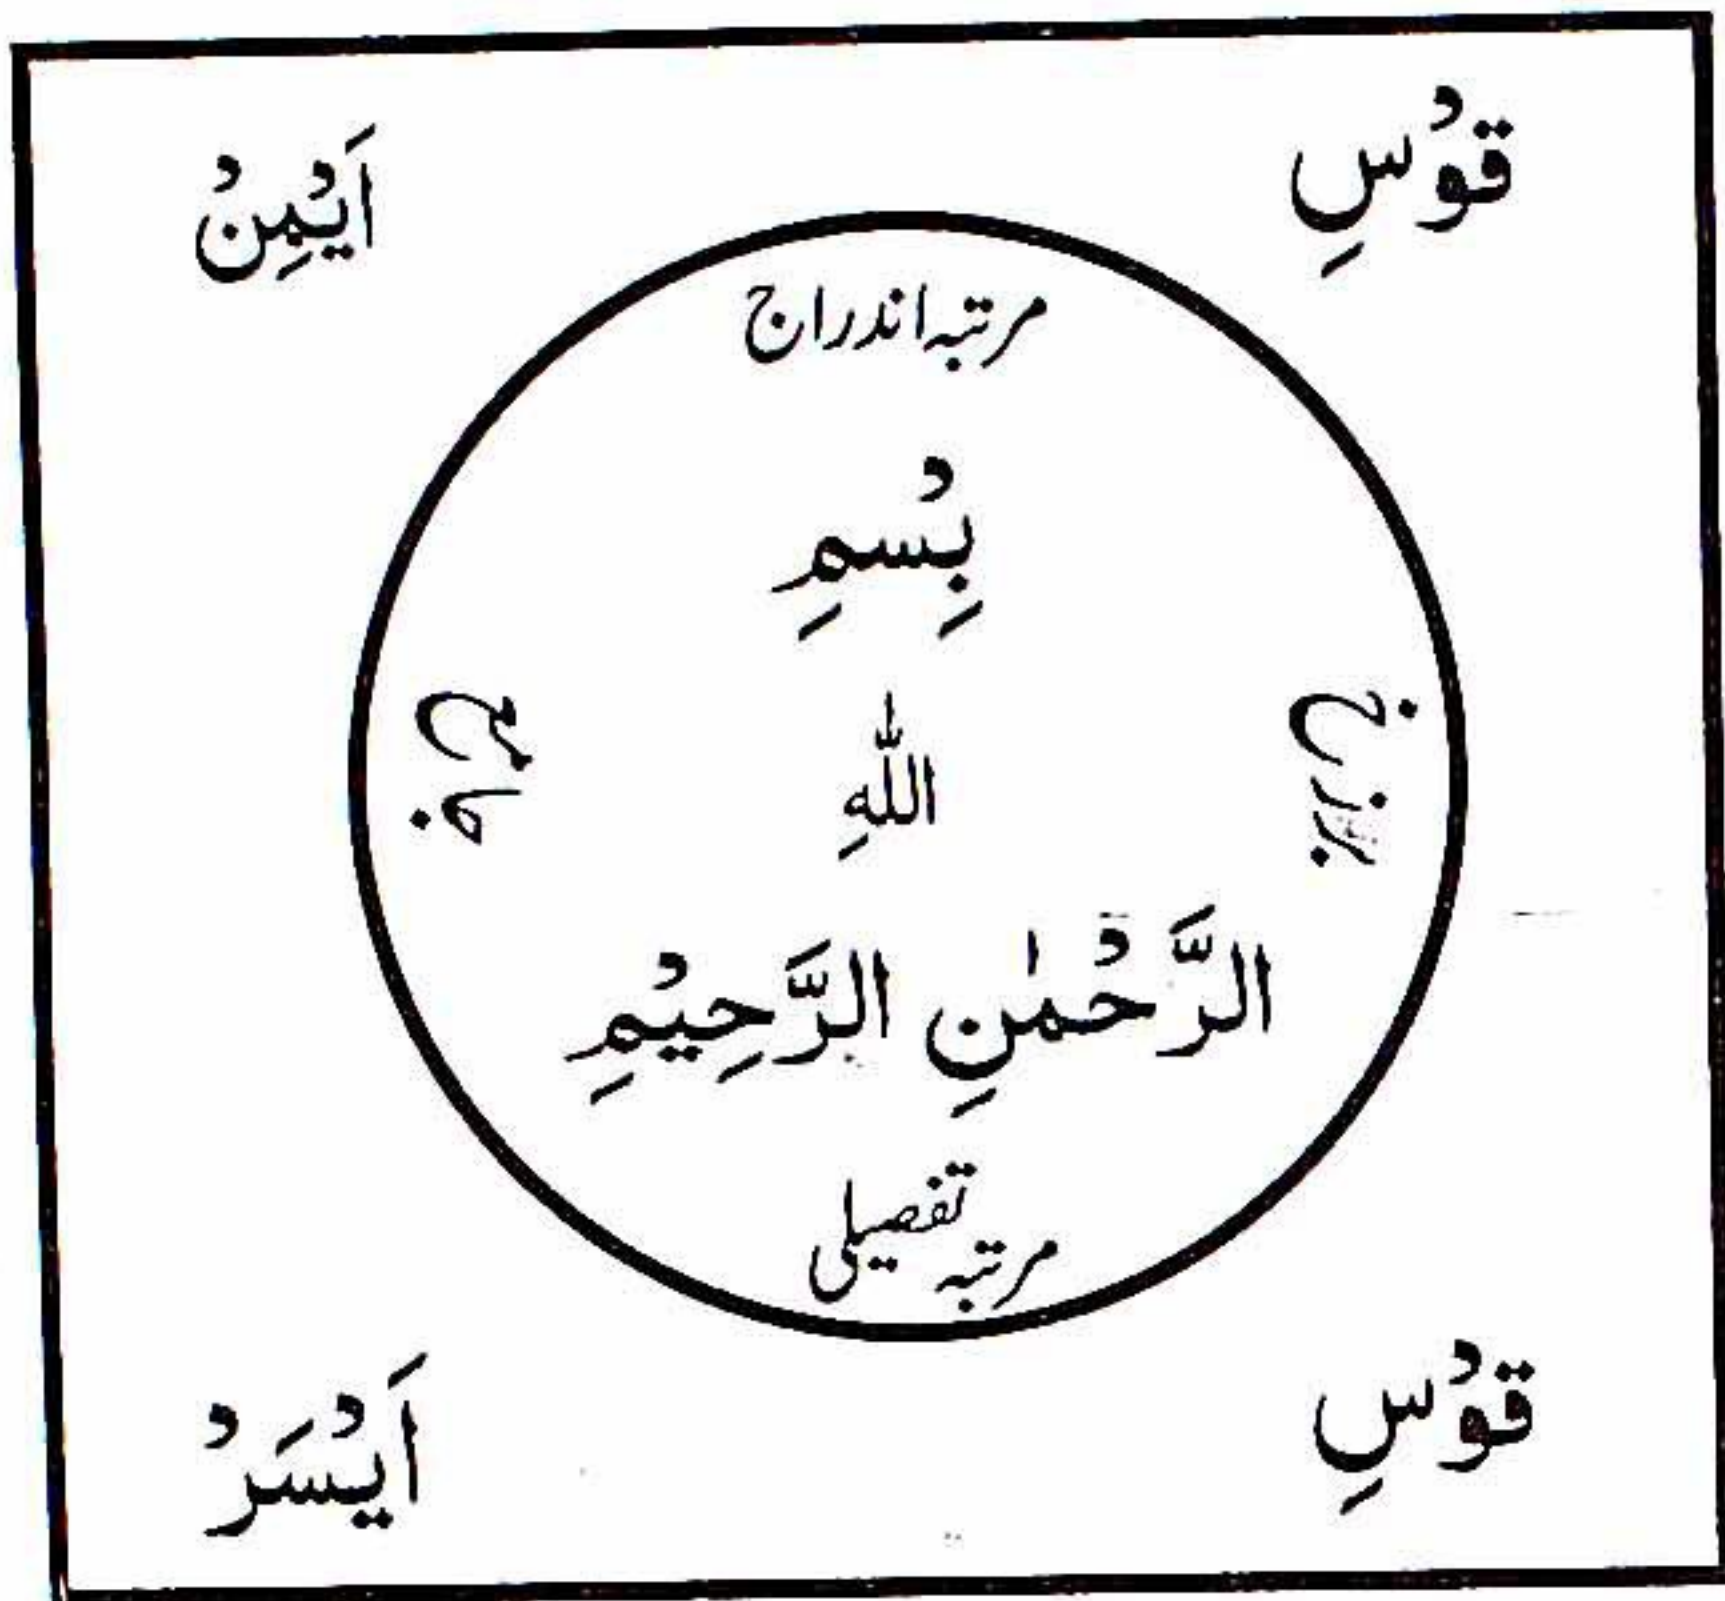 قَوْسِ اَیْمِنْ
مرتبہ اندراج
بِسْمِ
برزخ
اللّٰهِ
جامع
الرَّحْمٰنِ الرَّحِیْمِ
مرتبہ تفصیلی
قَوْسِ اَیْسَرْ